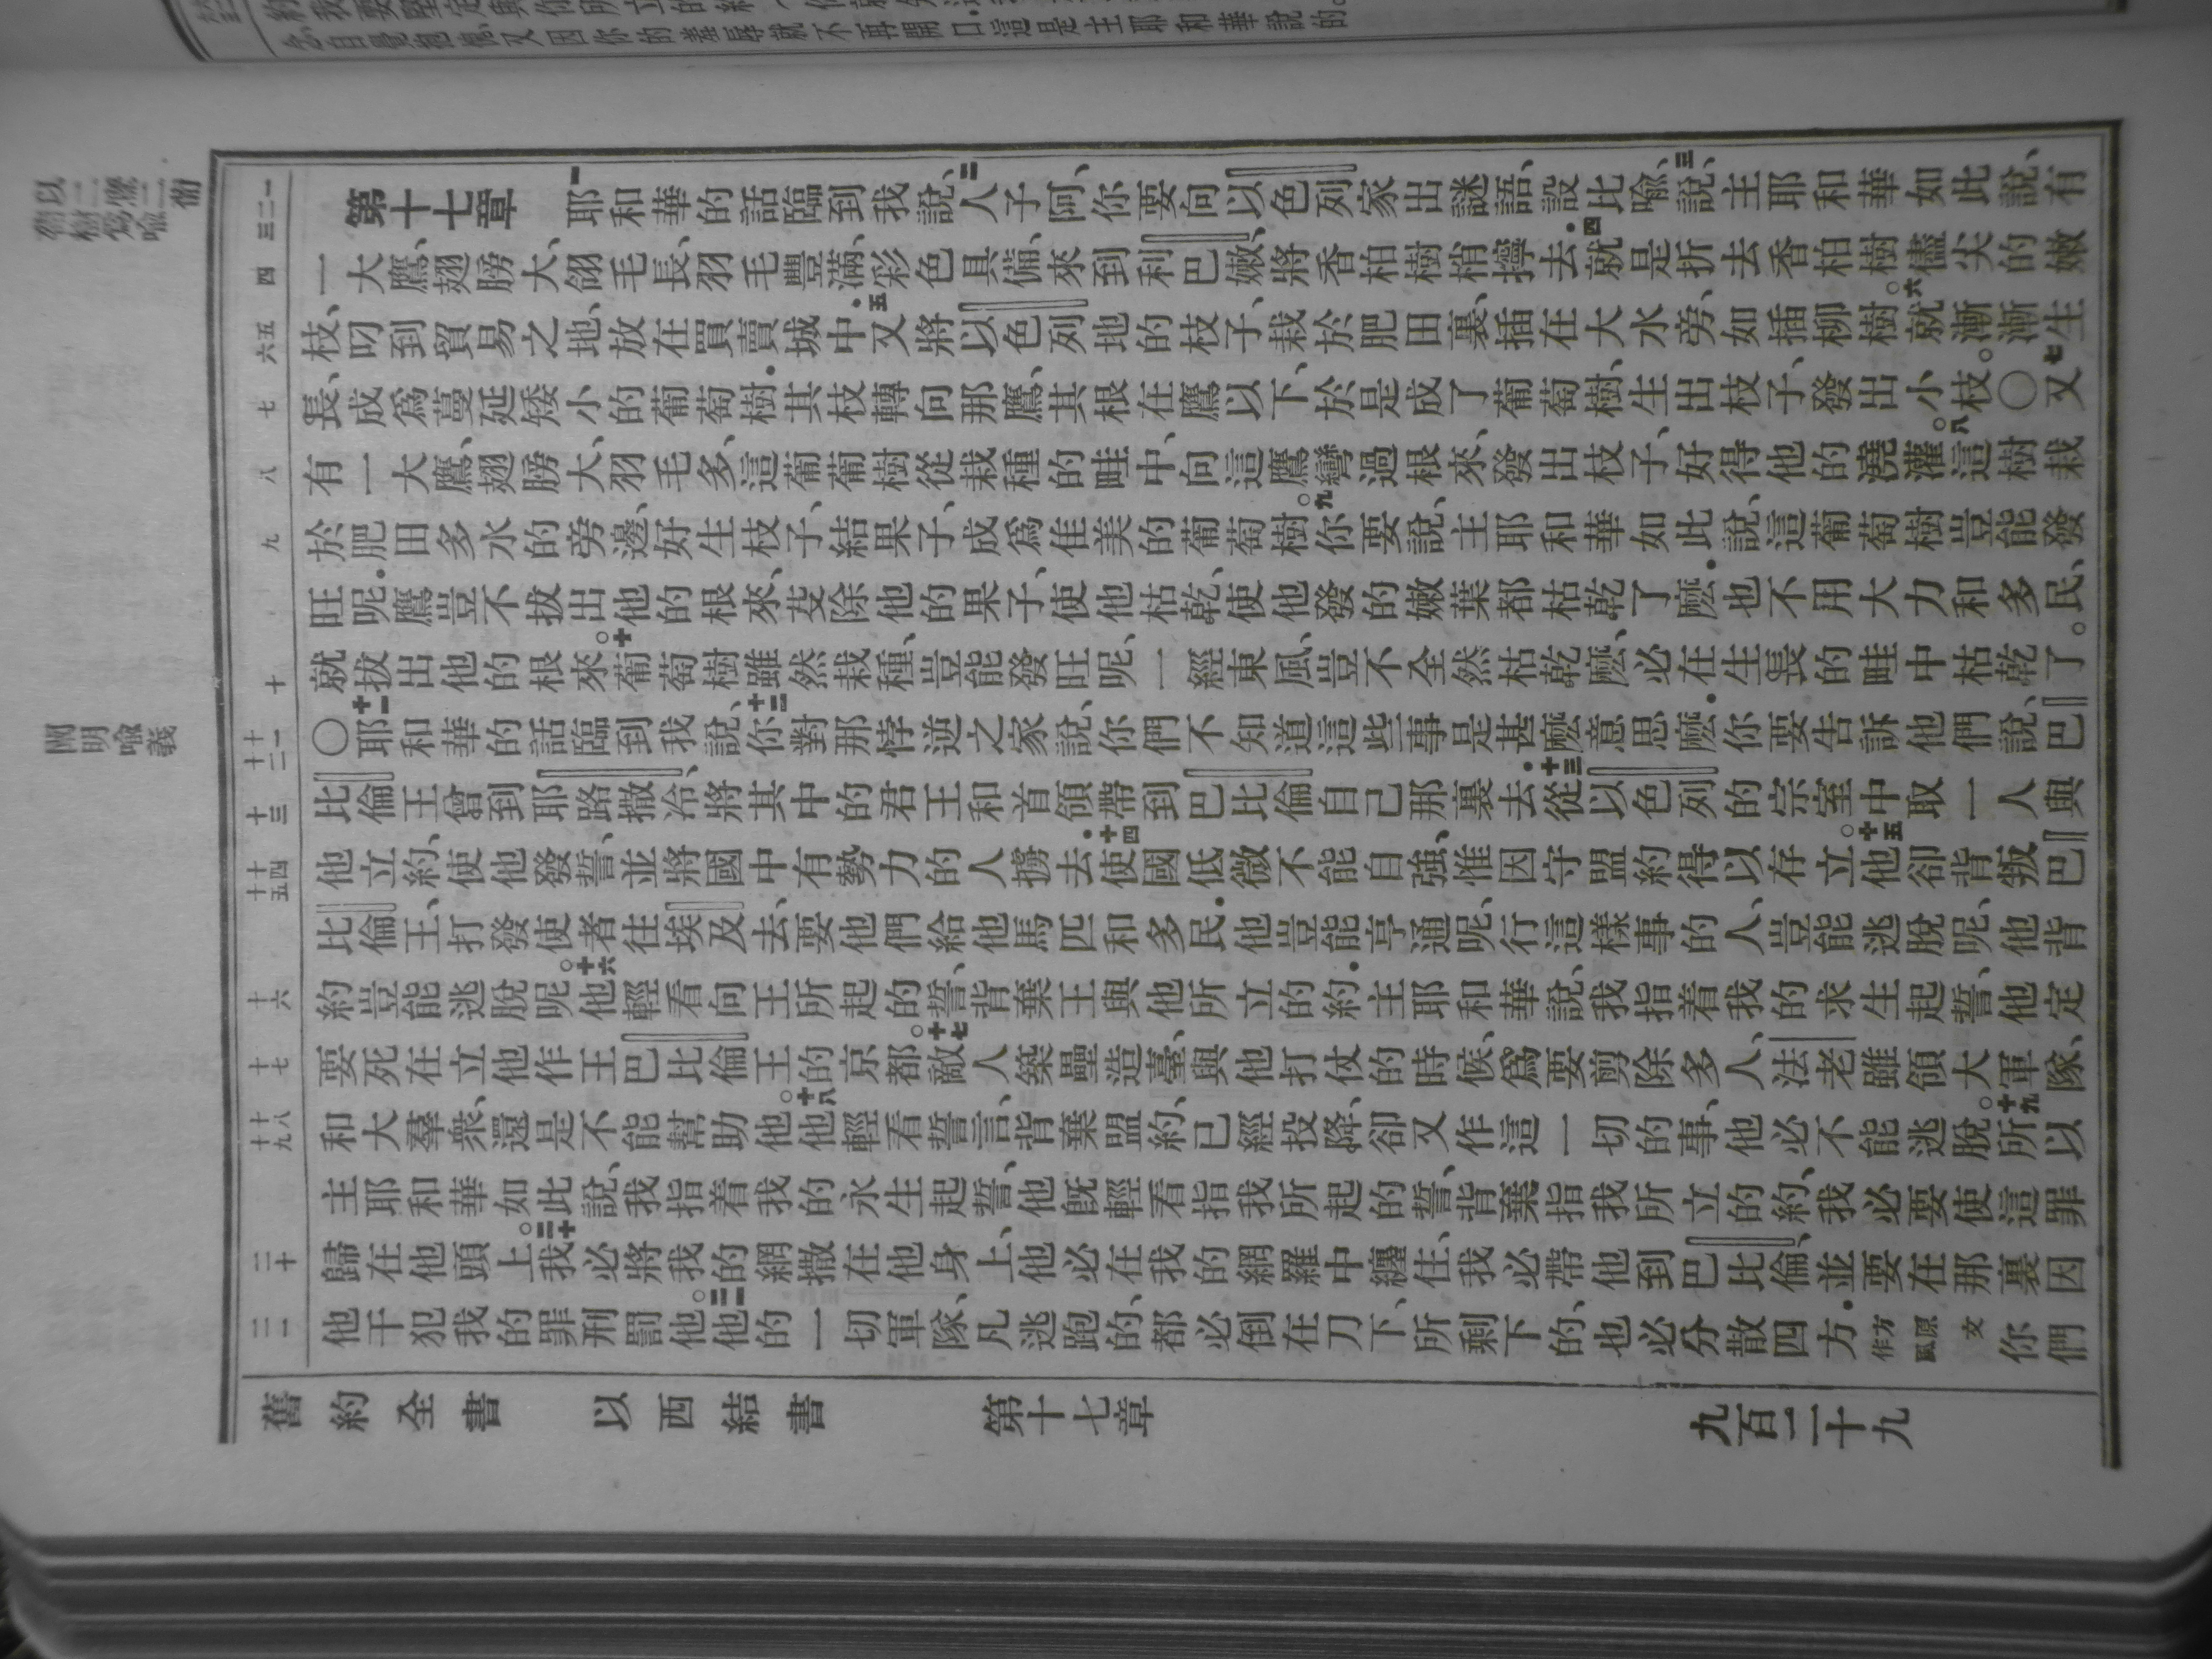 第十七章 一耶和華的話臨到我說、二人子阿、你要向以色列家出謎語、設比喻、三說、主耶和華如此說、有
一大鷹、翅膀大、翎毛長、羽毛豐滿、彩色具備、來到利巴嫩、將香柏樹梢擰去.四就是折去香柏樹儘尖的嫩
枝、叼到貿易之地、放在買賣城中.五又將以色列地的枝子、栽於肥田裏、插在大水旁、如插柳樹。六就漸漸生
長、成爲蔓延矮小的葡萄樹.其枝轉向那鷹、其根在鷹以下、於是成了葡萄樹、生出枝子、發出小枝。〇七又
有一大鷹、翅膀大、羽毛多、這葡萄樹從栽種的畦中、向這鷹彎過根來、發出枝子、好得他的澆灌。八這樹栽
於肥田多水的旁邊、好生枝子、結果子、成爲佳美的葡萄樹。九你要說、主耶和華如此說、這葡萄樹豈能發
旺呢.鷹豈不拔出他的根來、芟除他的果子、使他枯乾、使他發的嫩葉都枯乾了麽.也不用大力和多民、
就拔出他的根來。十葡萄樹雖然栽種、豈能發旺呢、一經東風、豈不全然枯乾麽、必在生長的畦中枯乾了。
〇十一耶和華的話臨到我說、十二你對那悖逆之家說、你們不知道這些事是甚麽意思麽.你要告訴他們說、巴
比倫王曾到耶路撒冷、將其中的君王和首領帶到巴比倫自己那裏去.十三從以色列的宗室中取一人與
他立約、使他發誓、並將國中有勢力的人擄去.十四使國低微不能自強、惟因守盟約得以存立。十五他卻背叛巴
比倫王、打發使者往埃及去、要他們給他馬匹和多民.他豈能亨通呢、行這樣事的人、豈能逃脫呢、他背
約豈能逃脫呢。十六他輕看向王所起的誓、背棄王與他所立的約.主耶和華說、我指着我的永生起誓、他定
要死在立他作王巴比倫王的京都。十七敵人築壘造臺、與他打仗的時候、爲要剪除多人、法老雖領大軍隊、
和大羣衆、還是不能幫助他。十八他輕看誓言、背棄盟約、已經投降、卻又作這一切的事、他必不能逃脫。十九所以
主耶和華如此說、我指着我的永生起誓、他既輕看指我所起的誓、背棄指我所立的約、我必要使這罪
歸在他頭上。二十我必將我的網撒在他身上、他必在我的網羅中纏住、我必帶他到巴比倫、並要在那裏因
他干犯我的罪刑罰他。二一他的一切軍隊、凡逃跑的、都必倒在刀下、所剩下的、也必分散四方.方原文作風你們
舊約全書 以西結書 第十七章 九百二十九
闡明喻義